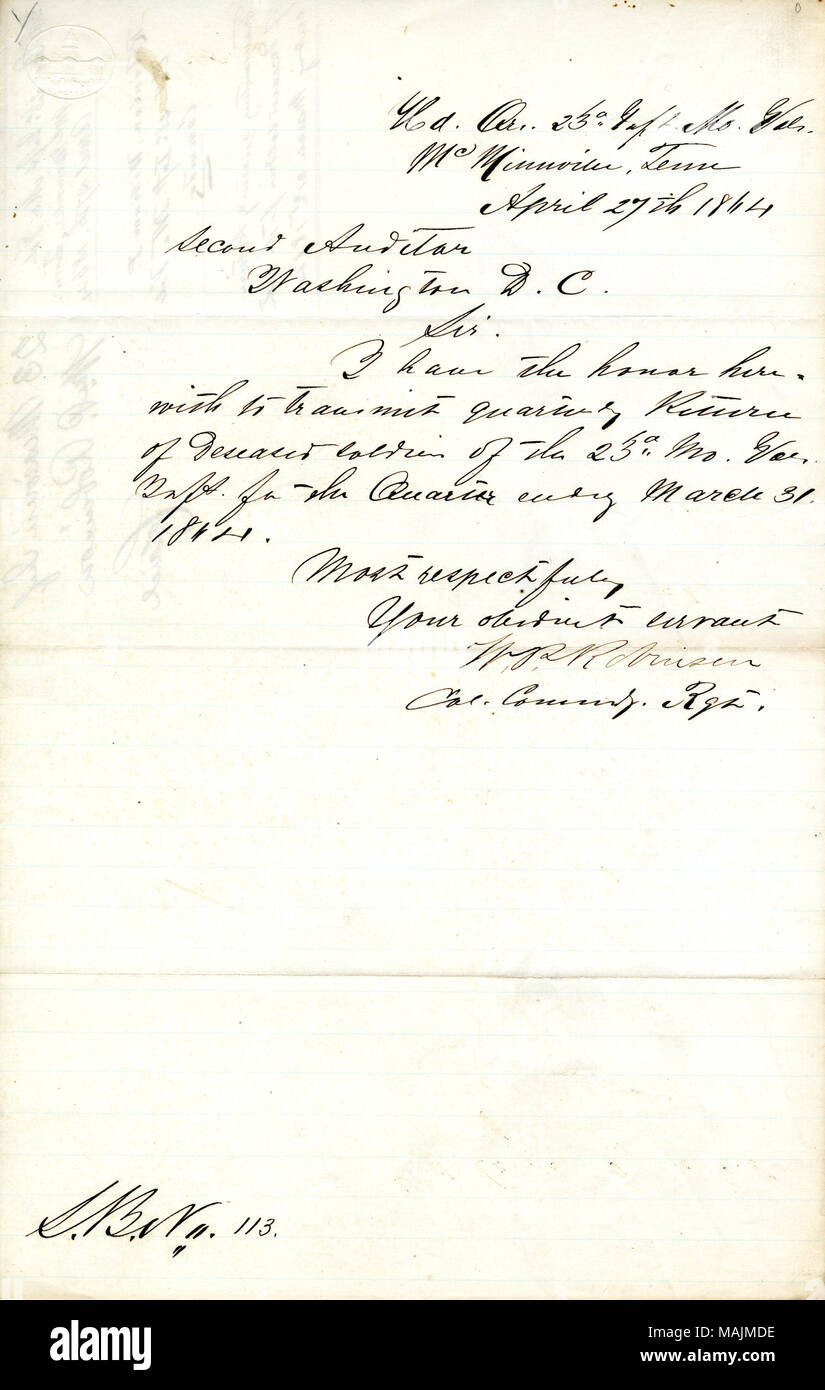 Hd. Qr. 23d Inft. Mo. Vols.
McMinnville, Tenn
April 27th 1864
Second Auditor
Washington D. C.
Sir.
I have the honor here-
with to transmit quarterly Return
of Deseased Soldiers of the 23d Mo. Vols.
Inft. for the Quarter ending March 31.
1864.
Most respectfully
Your obedient servant
W. P. Robinson
Col. Commdg. Rgt.
L. B. No. 113.
alamy
Image ID: MAJMDE
www.alamy.com